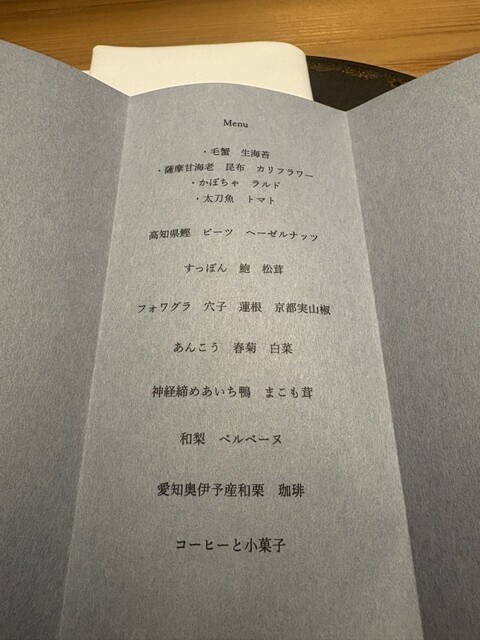 Menu
・毛蟹　生海苔
・薩摩甘海老　昆布　カリフラワー
・かぼちゃ　ラルド
・太刀魚　トマト
高知県鰹　ビーツ　ヘーゼルナッツ
すっぽん　鮑　松茸
フォワグラ　穴子　蓮根　京都実山椒
あんこう　春菊　白菜
神経締めあいち鴨　まこも茸
和梨　ベルベーヌ
愛知奥伊予産和栗　珈琲
コーヒーと小菓子